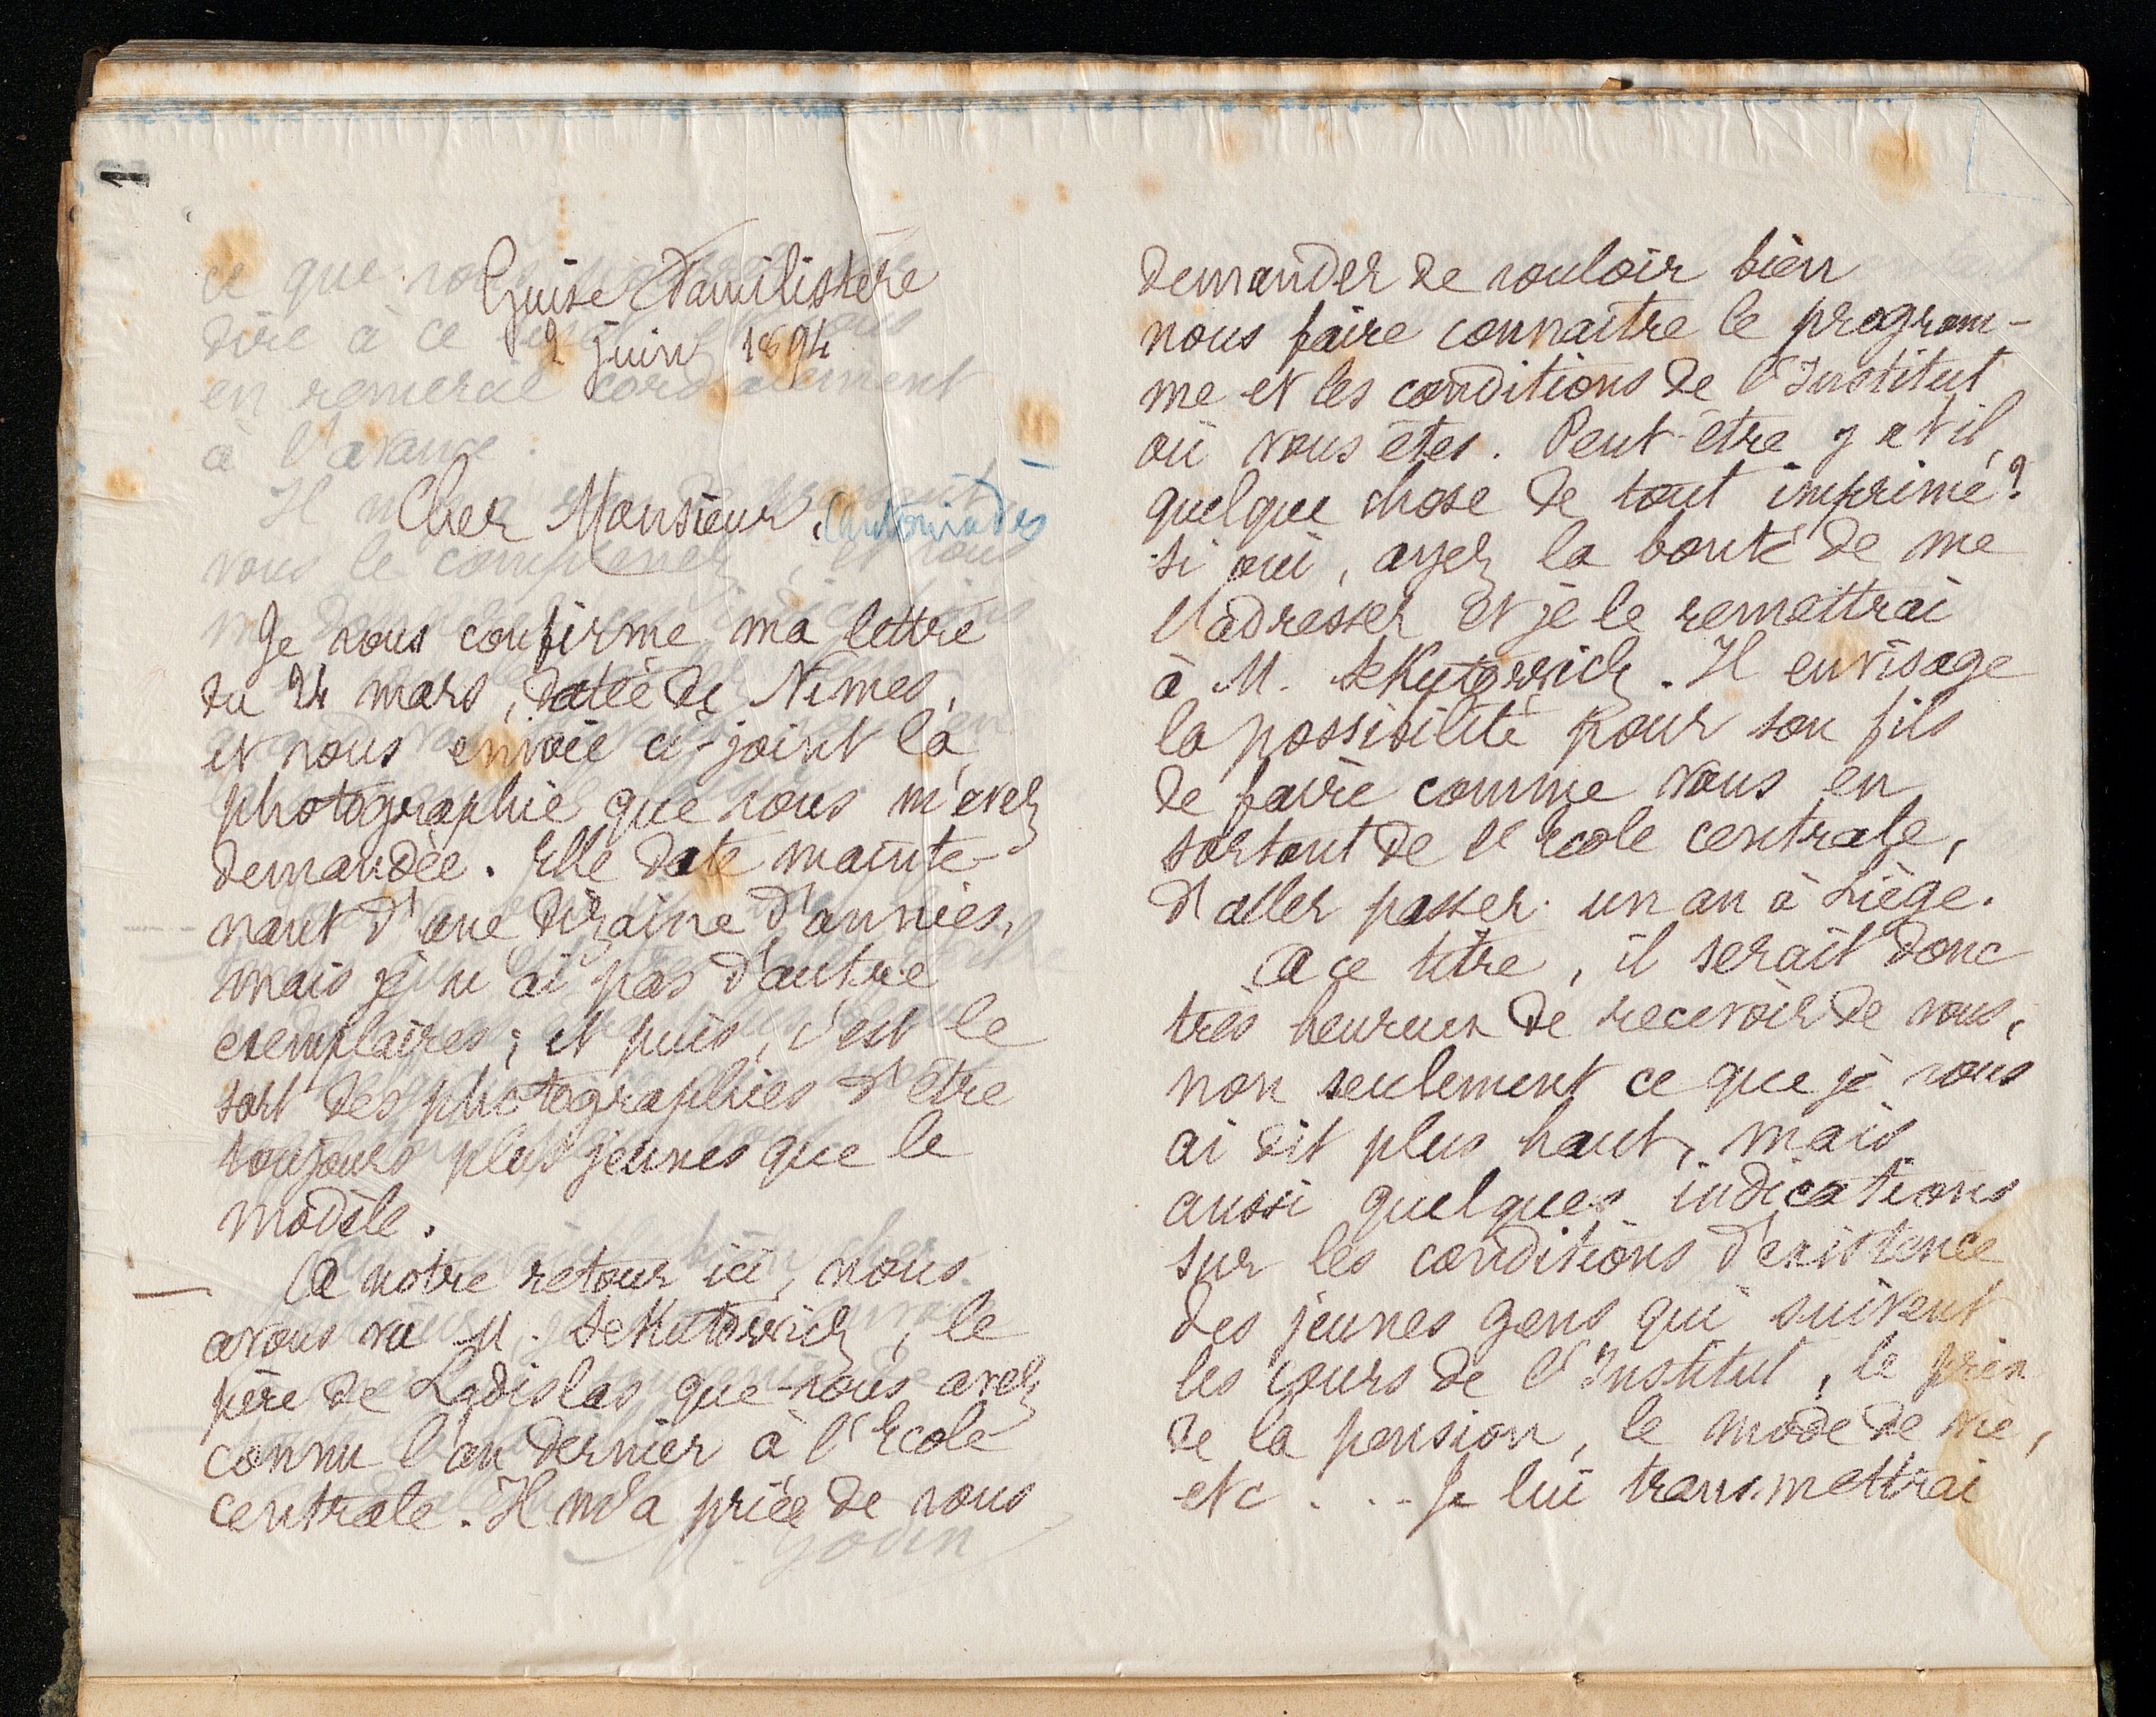 1
Guise Familistère
2 juin 1894
Cher Monsieur, Antoniadès
Je vous confirme ma lettre
du 24 mars, datée de Nimes,
et vous envoie ci-joint la
photographie que vous m'avez
demandée. Elle date mainte-
nant d'une dizaine d'années,
mais je n'ai pas d'autre
exemplaires; et puis, c'est le
sort des photographies d'être
toujours plus jeunes que le
modèle.
A notre retour ici, nous
avons vu M. Sekutowicz, le
père de Ladislas que vous avez
connu l'an dernier à l'Ecole
centrale. Il m'a priée de vous
demander de vouloir bien
nous faire connaitre le program-
me et les conditions de l'Institut
où vous êtes. Peut-être y a t il
quelque chose de tout imprimé?
si oui, ayez la bonté de me
l'adresser et je le remettrai
à M. Sekutowicz. Il envisage
la possibilité pour son fils
de faire comme vous en
sortant de l'Ecole centrale,
d'aller passer un an à Liège.
A ce titre, il serait donc
très heureux de recevoir de vous,
non seulement ce que je vous
ai dit plus haut, mais
aussi quelques indications
sur les conditions d'existence
des jeunes gens qui suivent
les cours de l'Institut, le prix
de la pension, le mode de vie,
etc... Je lui transmettrai